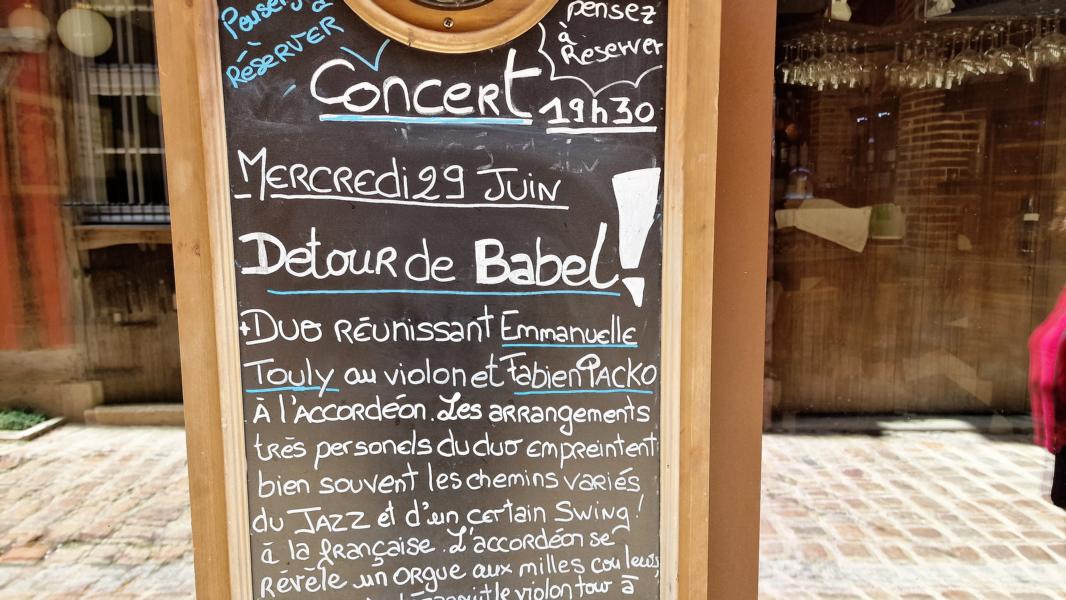 Pensez à
RÉSERVER
pensez
à
Réserver
Concert
19h30
MERCREDi 29 JUiN
Detour de Babel !
+Duo RÉUNISSANT Emmanuelle
Touly au violon et Fabien PACKO
À l'ACCORDÉON. Les ARRANGEMENTS
très personels du duo empreintent
bien souvent les chemins variés
du JAZZ et d'un certain Swing !
à la française. L'accordéon se
Révèle un orgue aux milles couleurs
le violon tour à